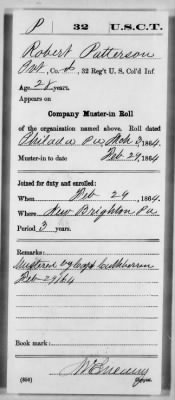 P 32 U.S.C.T.
Robert Patterson
Pvt, Co. A, 32 Reg't U. S. Col'd Inf.
Age 28 years.
Appears on
Company Muster-in Roll
of the organization named above. Roll dated
Philada Pa, Mch 3, 1864.
Muster-in to date Feb 29, 1864
Joined for duty and enrolled:
When Feb 29, 1864.
Where New Brighton, Pa
Period 3 years.
Remarks:
Mustered by Capt
Feb 29/64
Book mark:
(356) Copyist.